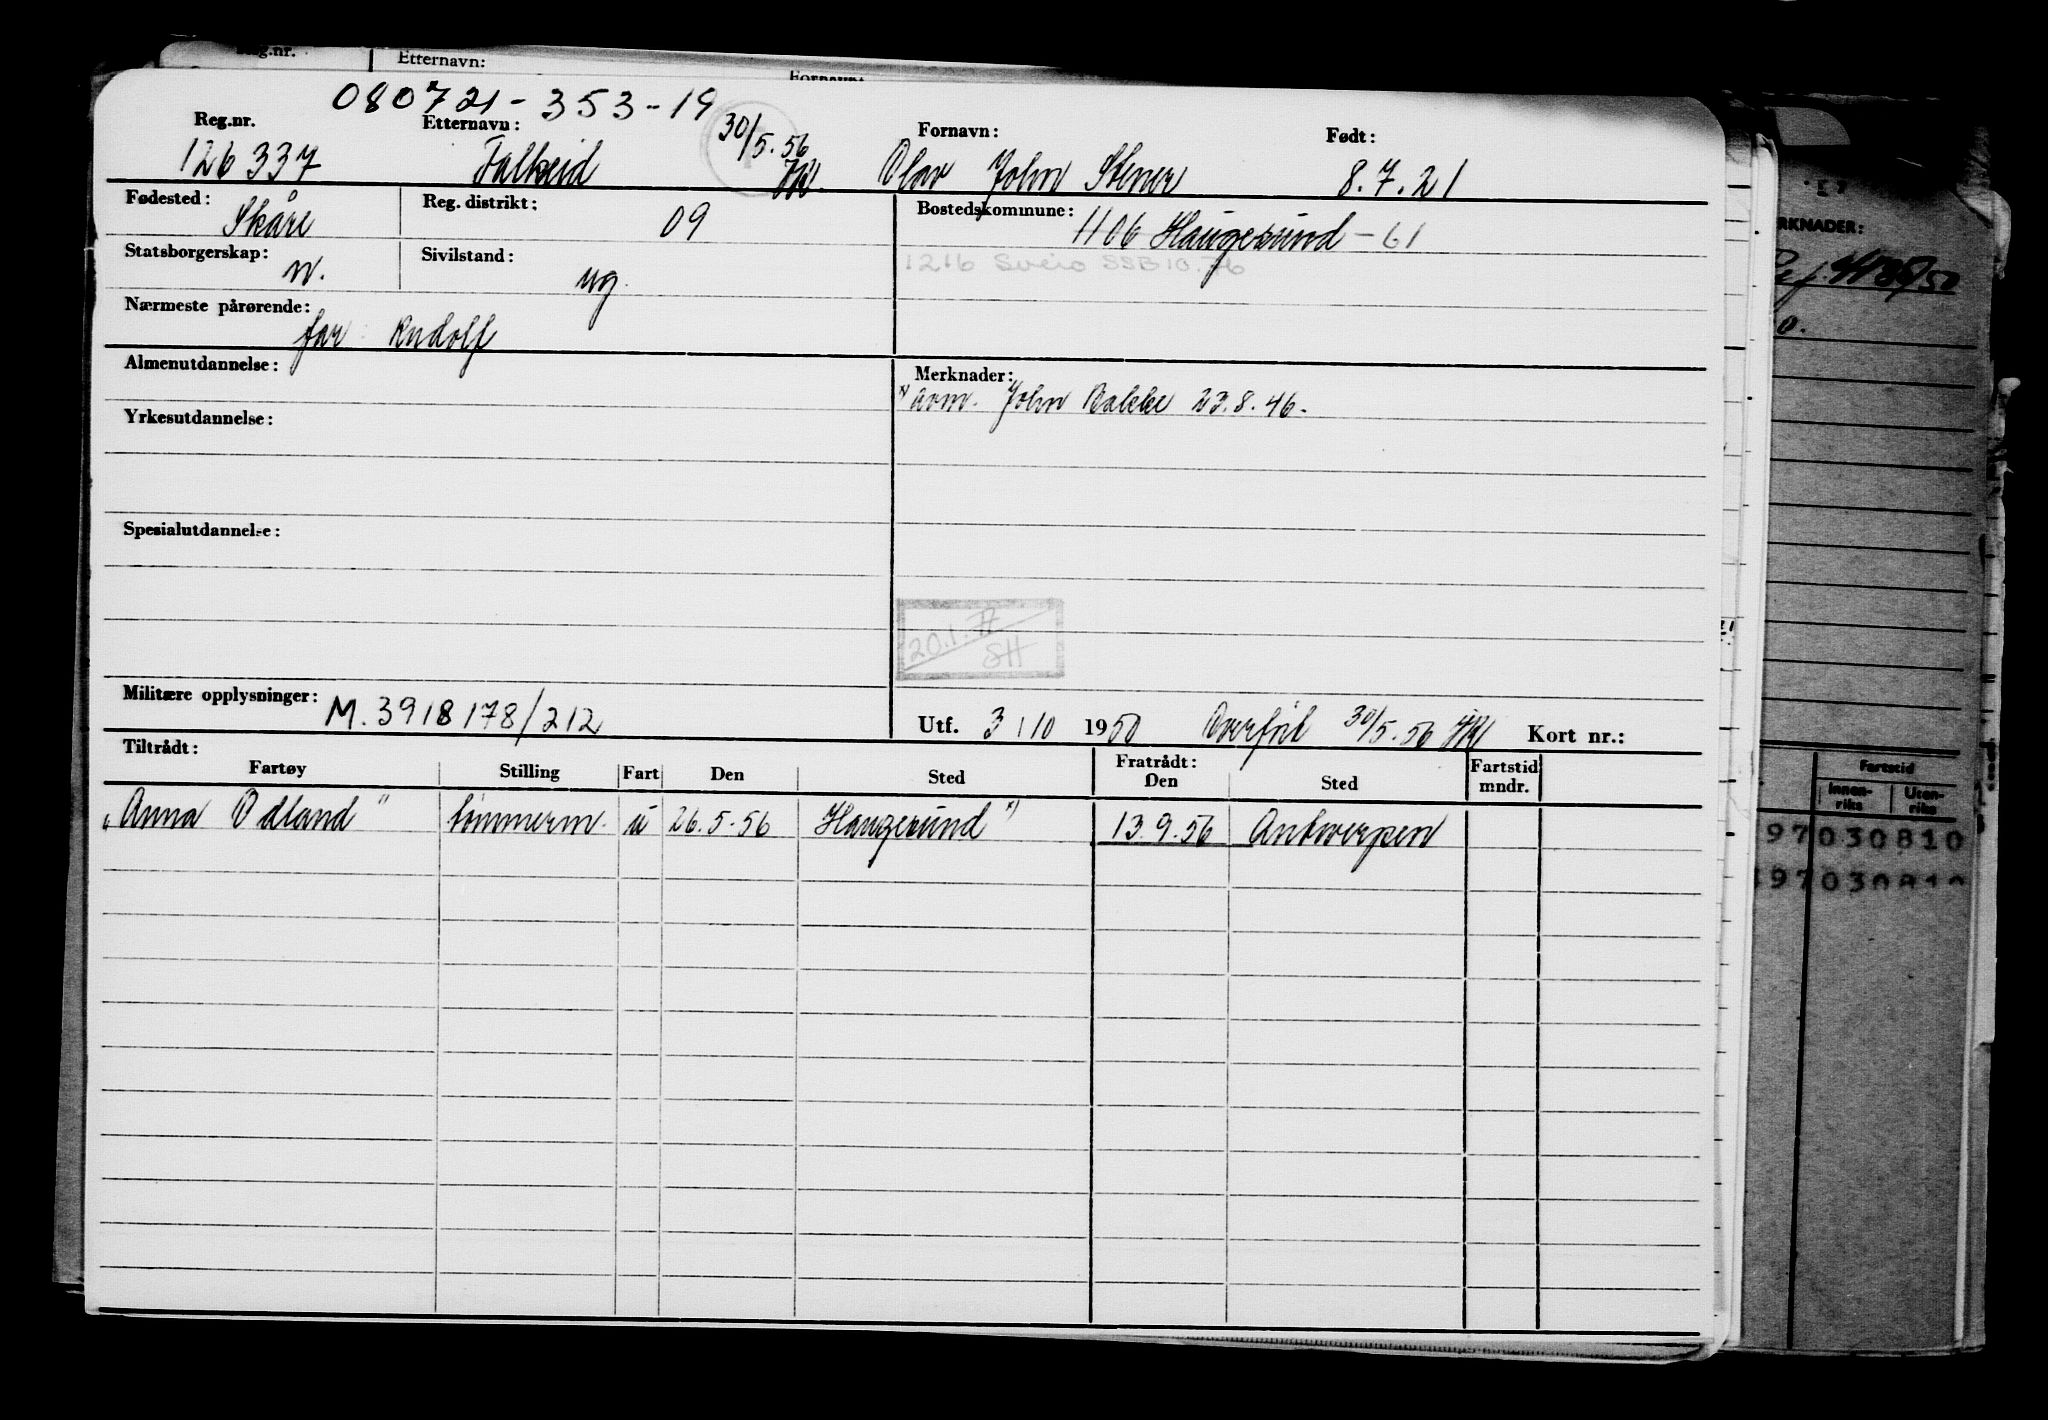 Reg.nr. Etternavn: Fornavn:
080721-353-19
Reg.nr. Etternavn: Fornavn: Født:
126337 Falkeid 30/5.56 Olav John Stener 8.7.21
Fødested: Skåre Reg. distrikt: 09 Bostedskommune: 1106 Haugesund - 61
1216 Sveio SSB 10.76
Statsborgerskap: n. Sivilstand: ug.
Nærmeste pårørende: far: Rudolf
Almenutdannelse: Merknader:
x) avm. John Bakke 23.8.46.
Yrkesutdannelse:
Spesialutdannelse:
20.1.77
SH
Militære opplysninger: M. 3918178/212 Utf. 3/10 1950 Overført 30/5.56 Kort nr.:
Tiltrådt: Fratrådt: Fartstid
Fartøy Stilling Fart Den Sted Den Sted mndr.
"Anna Odland" tømmerm. u 26.5.56 Haugesund x) 13.9.56 Antwerpen
RKNADER:
Fartstid
Innen-riks Uten-riks
97030810
97030810